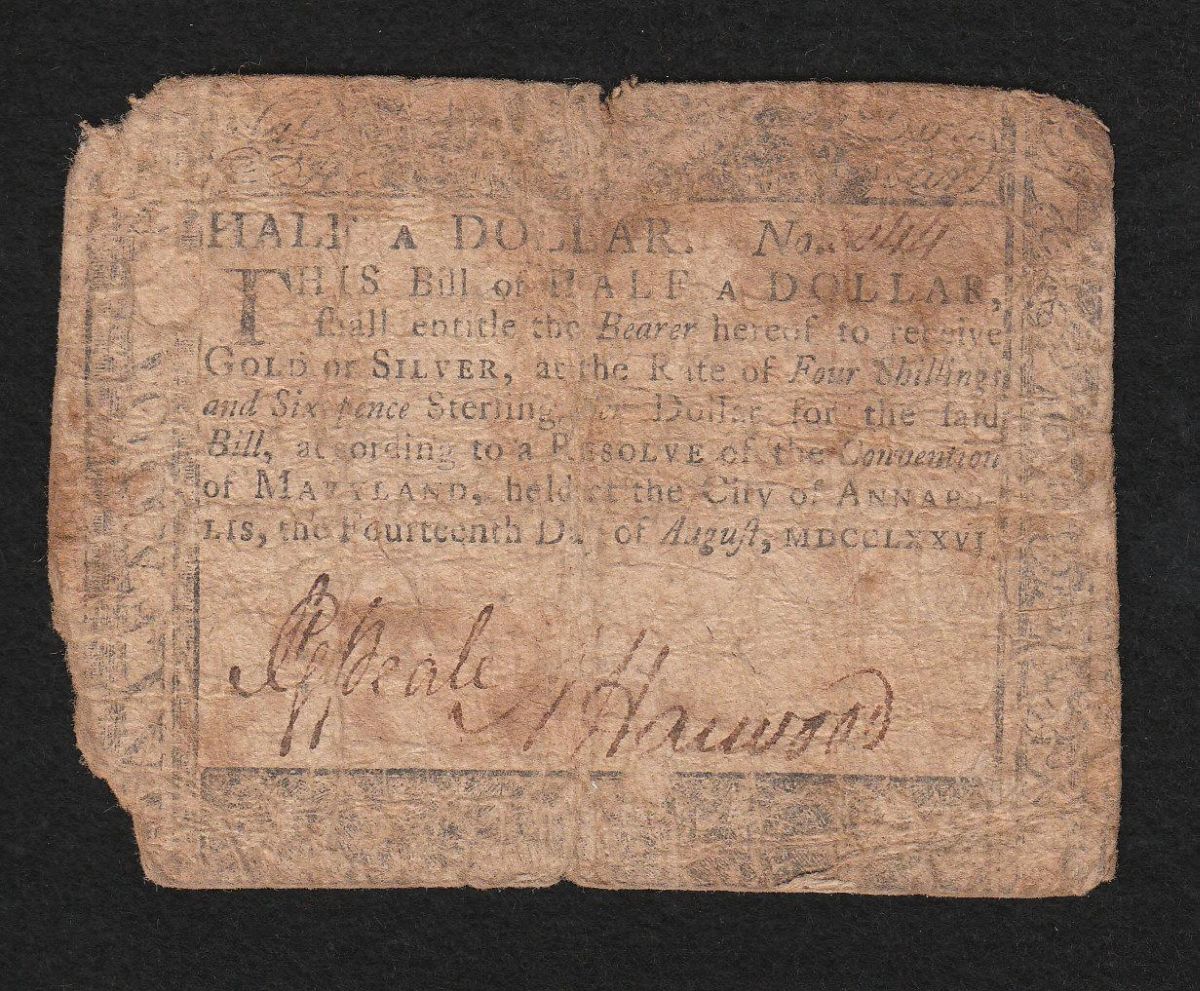 HALF A DOLLAR. No.
THIS Bill of HALF A DOLLAR,
ſhall entitle the Bearer hereof to receive
GOLD or SILVER, at the Rate of Four Shillings
and Sixpence Sterling per Dollar for the ſaid
Bill, according to a RESOLVE of the Convention
of MARYLAND, held at the City of ANNAPO-
LIS, the Fourteenth Day of Auguſt, MDCCLXXVI
Harwood